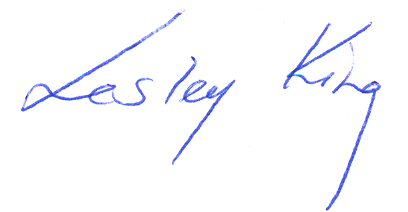 Lesley King